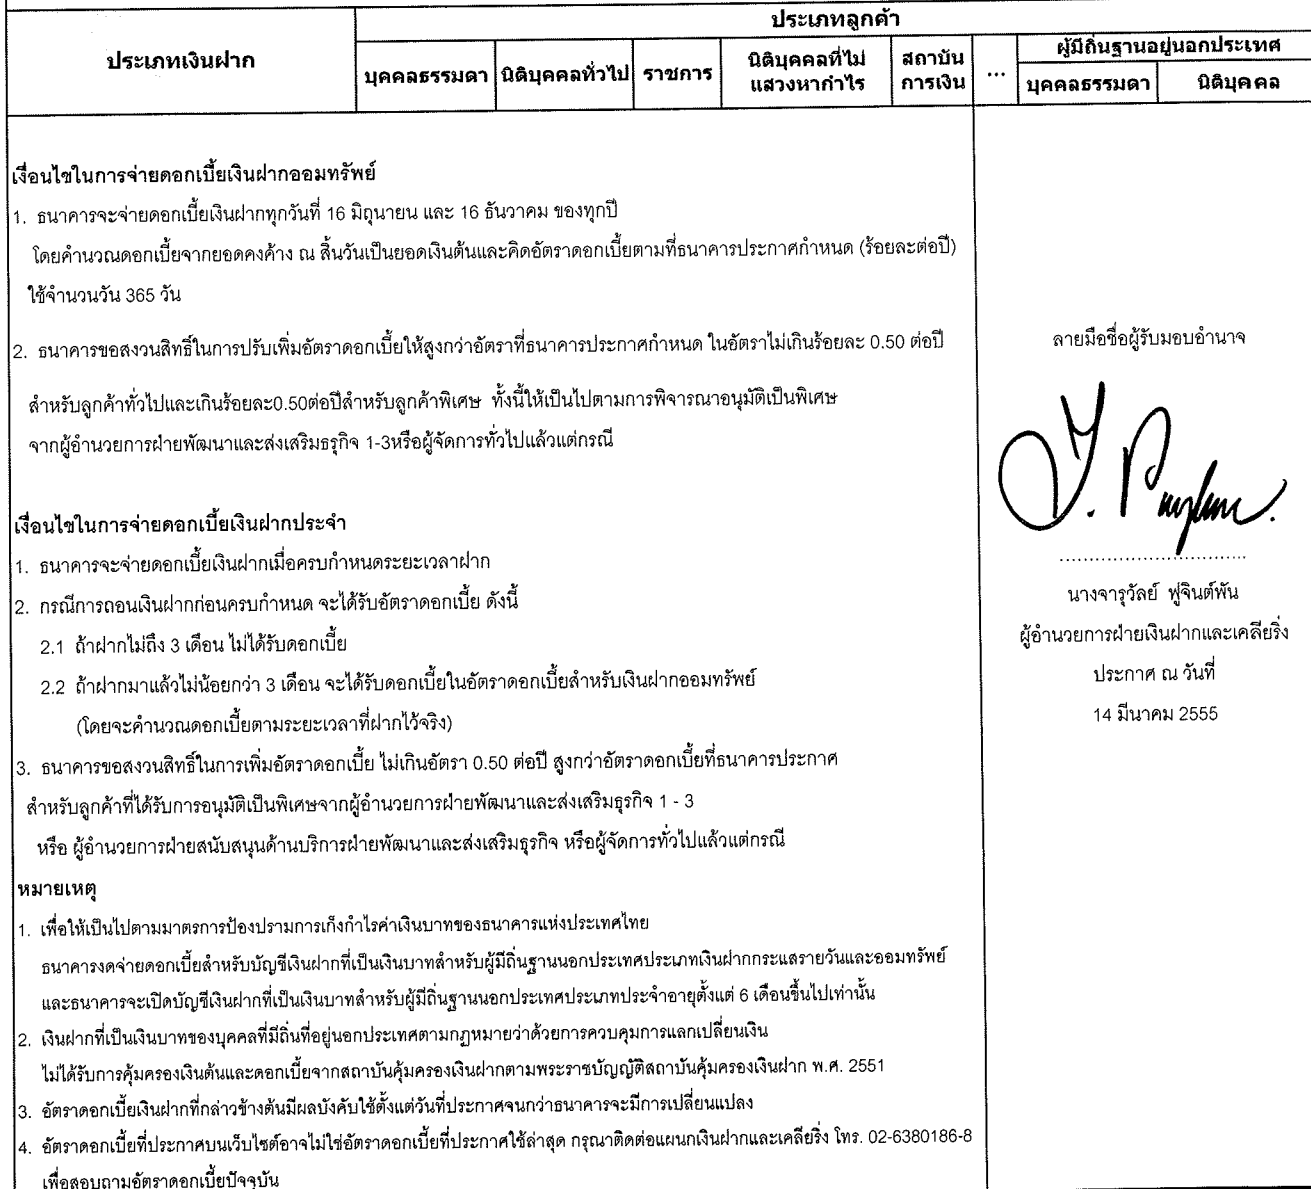 ประเภทลูกค้า
ประเภทเงินฝาก
ผู้มีถิ่นฐานอยู่นอกประเทศ
บุคคลธรรมดา นิติบุคคลทั่วไป ราชการ นิติบุคคลที่ไม่แสวงหากำไร สถาบันการเงิน ... บุคคลธรรมดา นิติบุคคล
เงื่อนไขในการจ่ายดอกเบี้ยเงินฝากออมทรัพย์
1. ธนาคารจะจ่ายดอกเบี้ยเงินฝากทุกวันที่ 16 มิถุนายน และ 16 ธันวาคม ของทุกปี
โดยคำนวณดอกเบี้ยจากยอดคงค้าง ณ สิ้นวันเป็นยอดเงินต้นและคิดอัตราดอกเบี้ยตามที่ธนาคารประกาศกำหนด (ร้อยละต่อปี)
ใช้จำนวนวัน 365 วัน
2. ธนาคารขอสงวนสิทธิ์ในการปรับเพิ่มอัตราดอกเบี้ยให้สูงกว่าอัตราที่ธนาคารประกาศกำหนด ในอัตราไม่เกินร้อยละ 0.50 ต่อปี
สำหรับลูกค้าทั่วไปและเกินร้อยละ0.50ต่อปีสำหรับลูกค้าพิเศษ ทั้งนี้ให้เป็นไปตามการพิจารณาอนุมัติเป็นพิเศษ
จากผู้อำนวยการฝ่ายพัฒนาและส่งเสริมธุรกิจ 1-3หรือผู้จัดการทั่วไปแล้วแต่กรณี
เงื่อนไขในการจ่ายดอกเบี้ยเงินฝากประจำ
1. ธนาคารจะจ่ายดอกเบี้ยเงินฝากเมื่อครบกำหนดระยะเวลาฝาก
2. กรณีการถอนเงินฝากก่อนครบกำหนด จะได้รับอัตราดอกเบี้ย ดังนี้
2.1 ถ้าฝากไม่ถึง 3 เดือน ไม่ได้รับดอกเบี้ย
2.2 ถ้าฝากมาแล้วไม่น้อยกว่า 3 เดือน จะได้รับดอกเบี้ยในอัตราดอกเบี้ยสำหรับเงินฝากออมทรัพย์
(โดยจะคำนวณดอกเบี้ยตามระยะเวลาที่ฝากไว้จริง)
3. ธนาคารขอสงวนสิทธิ์ในการเพิ่มอัตราดอกเบี้ย ไม่เกินอัตรา 0.50 ต่อปี สูงกว่าอัตราดอกเบี้ยที่ธนาคารประกาศ
สำหรับลูกค้าที่ได้รับการอนุมัติเป็นพิเศษจากผู้อำนวยการฝ่ายพัฒนาและส่งเสริมธุรกิจ 1 - 3
หรือ ผู้อำนวยการฝ่ายสนับสนุนด้านบริการฝ่ายพัฒนาและส่งเสริมธุรกิจ หรือผู้จัดการทั่วไปแล้วแต่กรณี
หมายเหตุ
1. เพื่อให้เป็นไปตามมาตรการป้องปรามการเก็งกำไรค่าเงินบาทของธนาคารแห่งประเทศไทย
ธนาคารงดจ่ายดอกเบี้ยสำหรับบัญชีเงินฝากที่เป็นเงินบาทสำหรับผู้มีถิ่นฐานนอกประเทศประเภทเงินฝากกระแสรายวันและออมทรัพย์
และธนาคารจะเปิดบัญชีเงินฝากที่เป็นเงินบาทสำหรับผู้มีถิ่นฐานนอกประเทศประเภทประจำอายุตั้งแต่ 6 เดือนขึ้นไปเท่านั้น
2. เงินฝากที่เป็นเงินบาทของบุคคลที่มีถิ่นที่อยู่นอกประเทศตามกฎหมายว่าด้วยการควบคุมการแลกเปลี่ยนเงิน
ไม่ได้รับการคุ้มครองเงินต้นและดอกเบี้ยจากสถาบันคุ้มครองเงินฝากตามพระราชบัญญัติสถาบันคุ้มครองเงินฝาก พ.ศ. 2551
3. อัตราดอกเบี้ยเงินฝากที่กล่าวข้างต้นมีผลบังคับใช้ตั้งแต่วันที่ประกาศจนกว่าธนาคารจะมีการเปลี่ยนแปลง
4. อัตราดอกเบี้ยที่ประกาศบนเว็บไซต์อาจไม่ใช่อัตราดอกเบี้ยที่ประกาศใช้ล่าสุด กรุณาติดต่อแผนกเงินฝากและเคลียริ่ง โทร. 02-6380186-8
เพื่อสอบถามอัตราดอกเบี้ยปัจจุบัน
ลายมือชื่อผู้รับมอบอำนาจ
นางจารุวัลย์ ฟูจินต์พัน
ผู้อำนวยการฝ่ายเงินฝากและเคลียริ่ง
ประกาศ ณ วันที่
14 มีนาคม 2555